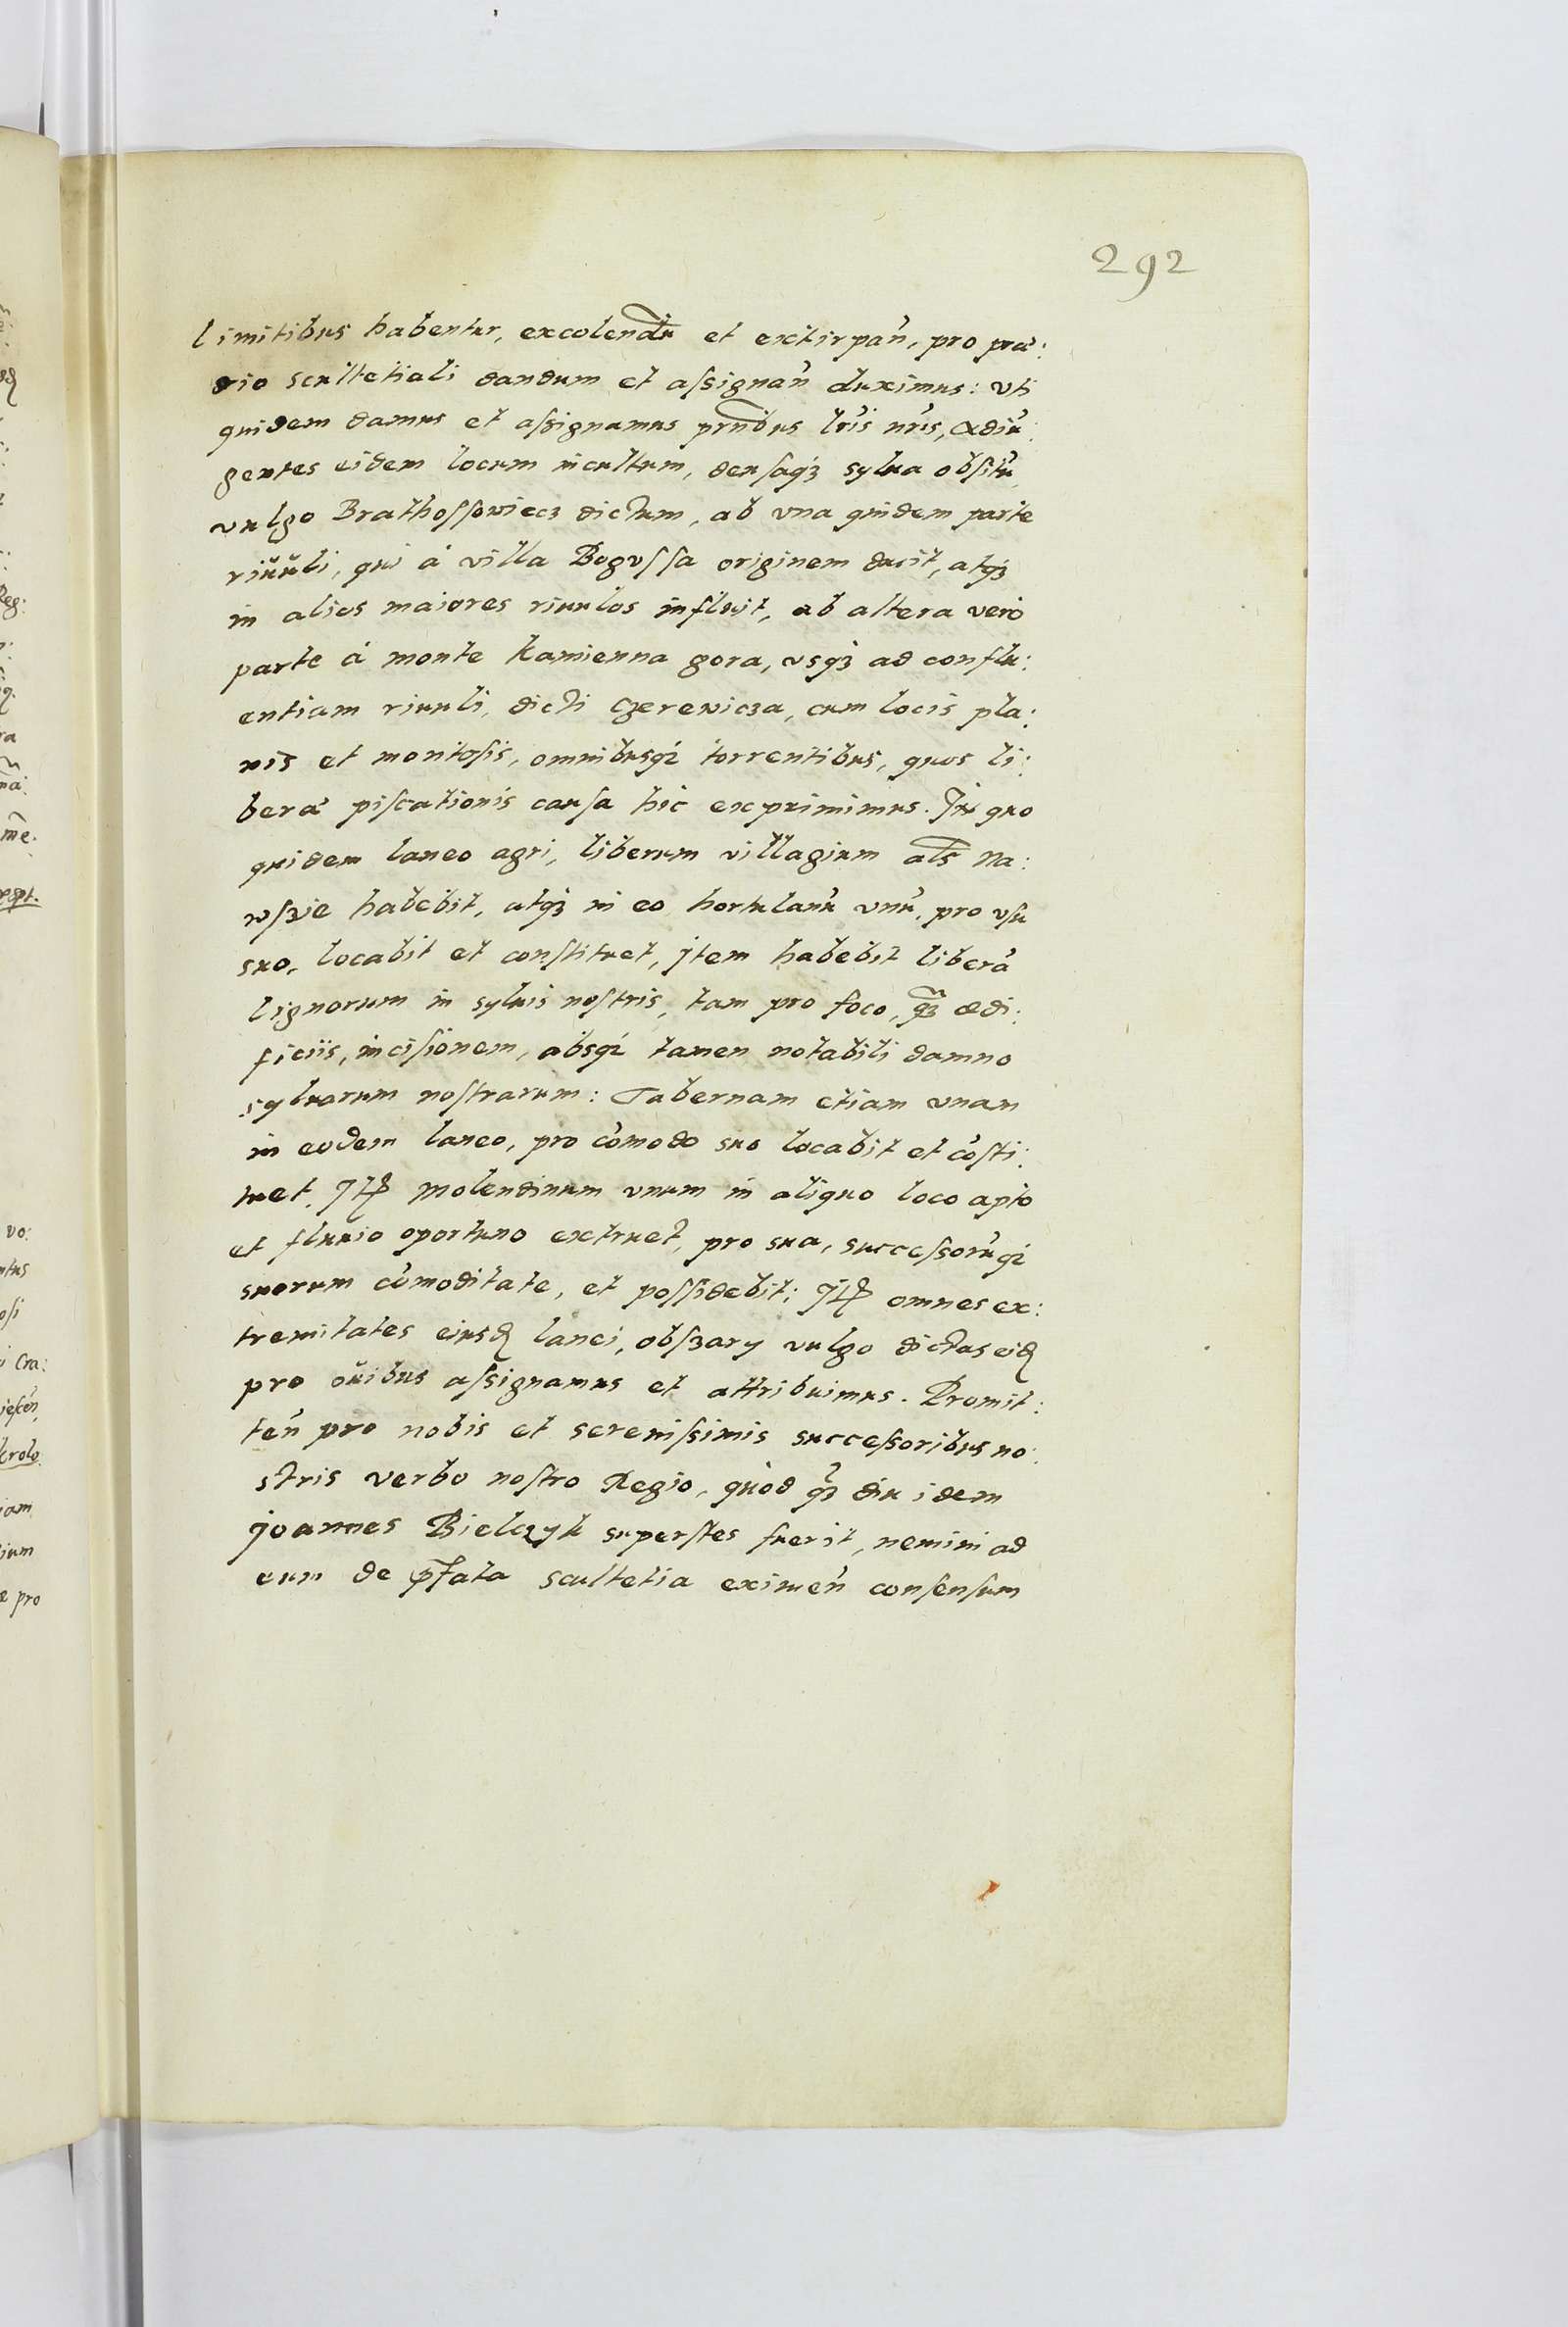 292
limitibus habentur, excolendū et extirpan̄, pro præ:
dio scultetiali dandum et aſsignan̄ duximus: vti
quidem damus et aſsignamus prn̄tibus lr̄is nr̄is, adiū:
gentes eidem locum incultum, denſaqʒ sylua obſitū,
vulgo Brathoſſowiecz dictum, ab vna quidem parte
riuuli, qui à villa Boguſſa originem ducit, atqʒ
in alios maiores riuulos influit, ab altera verò
parte à monte Kamienna gora, vsqʒ ad conflu:
entiam riuuli, dicti Czerewicza, cum locis pla:
nis et montoſis, omnibusqʒ torrentibus, quos li:
beræ piſcationis cauſa hic exprimimus. In quo
quidem laneo agri, liberum villagium al̄s Na:
wſzie habebit, atqʒ in eo hortulanū vnū, pro vſu
suo, locabit et conſtituet, jtem habebit liberā
lignorum in syluis noſtris, tam pro foco, qʒ̄ ædi:
ficiis, inciſionem, absqʒ tamen notabili damno
syluarum noſtrarum: Tabernam etiam vnam
in eodem laneo, pro cōmodo suo locabit et cōſti:
tuet. Jtꝑ molendinum vnum in aliquo loco apto
et fluuio oportuno extruet, pro sua, succeſsorūqʒ
suorum cōmoditate, et poſſidebit; Jtꝑ omnes ex:
tremitates eiusd̄ lanei, obſzary vulgo dictas eid̄
pro ouibus aſsignamus et attribuimus. Promit:
ten̄ pro nobis et sereniſsimis succeſsoribus no:
stris verbo noſtro Regio, quòd qʒ̄ diu idem
Joannes Bielczyk superſtes fuerit, nemini ad
eum de p̄fata scultetia eximen̄ conſenſum